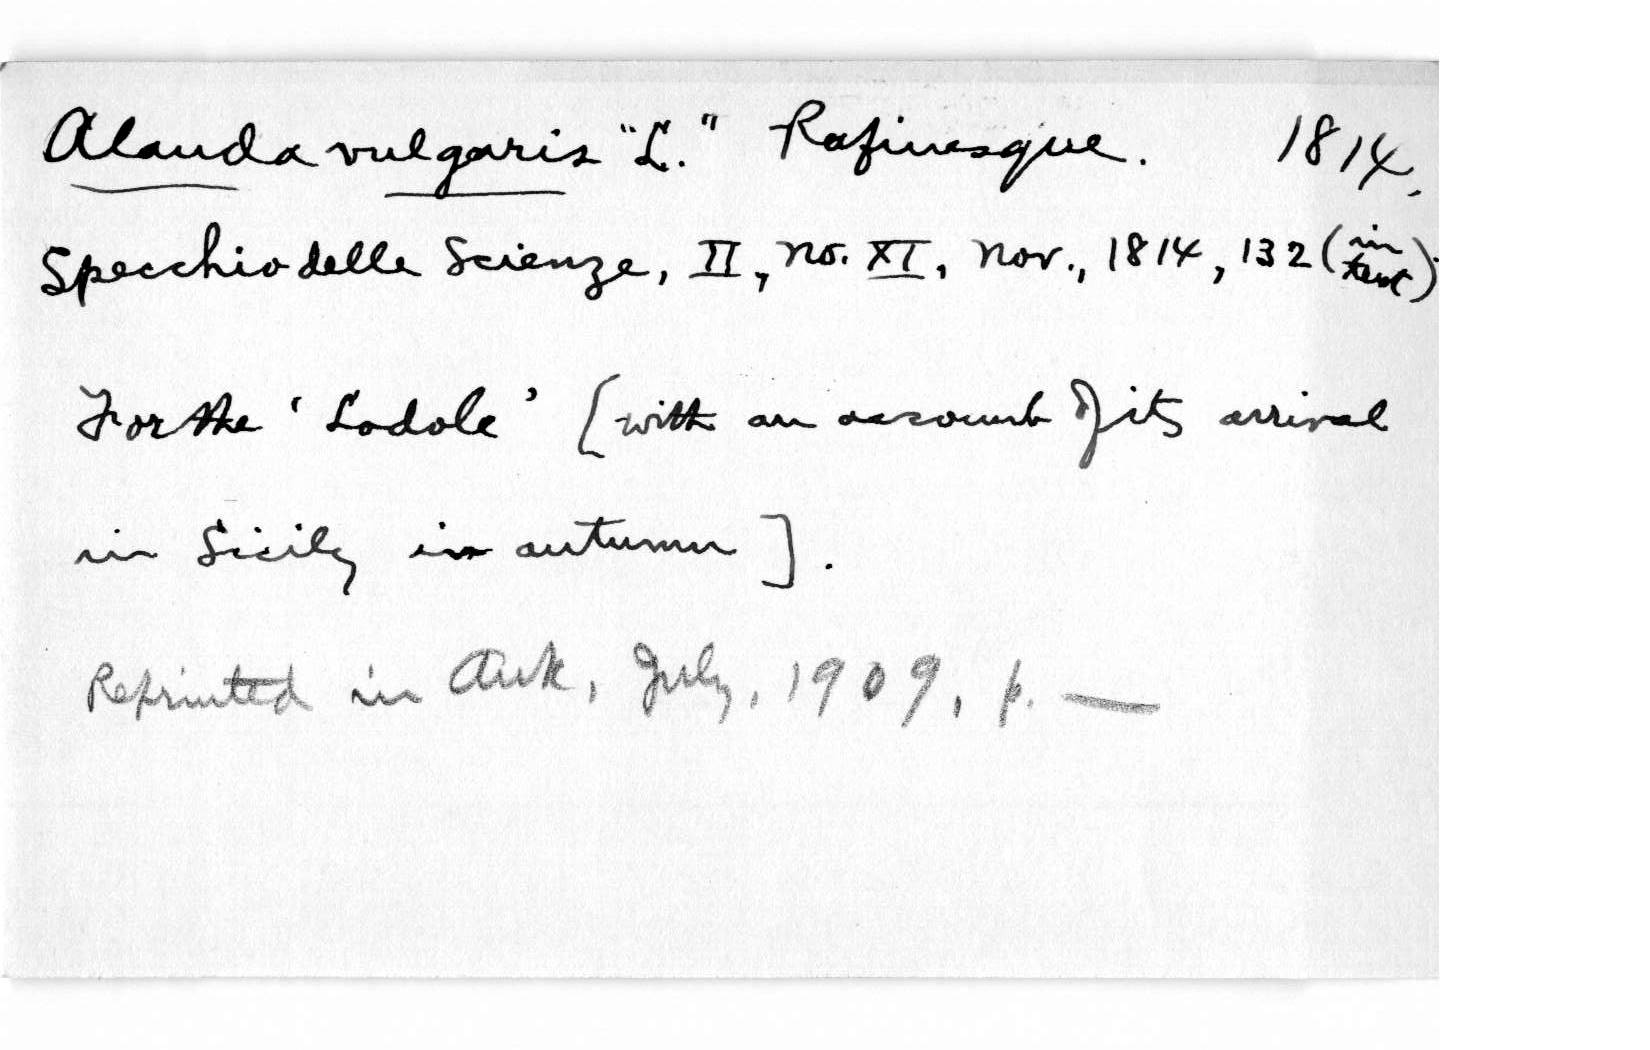 Alauda vulgaris "L." Rafinesque. 1814.
Specchio delle Scienze, II, no. XI, Nov., 1814, 132 (in text).
For the 'Lodole' [with an account of its arrival
in Sicily in autumn].
Reprinted in Auk, July, 1909, p. —